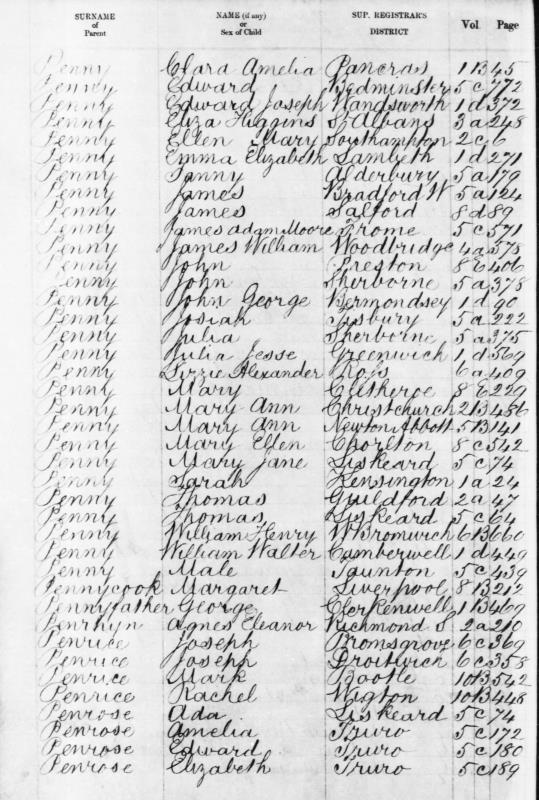 SURNAME of Parent NAME (if any) or Sex of Child SUP. REGISTRAR'S DISTRICT Vol Page
Penny Clara Amelia Pancras 1 B 45
Penney Edward Bedminster 5 c 772
Penny Edward Joseph Wandsworth 1 d 372
Penny Eliza Higgins St Albans 3 a 248
Penny Ellen Mary Southampton 2 c 6
Penny Emma Elizabeth Lambeth 1 d 271
Penny Fanny Alderbury 5 a 179
Penny James Bradford W 5 a 124
Penny James Salford 8 d 89
Penny James Adam Moore Frome 5 c 571
Penny James William Woodbridge 4 a 578
Penny John Preston 8 E 406
Penny John Sherborne 5 a 378
Penny John George Bermondsey 1 d 90
Penny Josiah Tisbury 5 a 222
Penny Julia Sherborne 5 a 375
Penny Julia Jesse Greenwich 1 d 569
Penny Lizzie Alexander 6 a 409
Penny Mary Clitheroe 8 E 229
Penny Mary Ann Christchurch 2 B 486
Penny Mary Ann Newton Abbott 5 B 141
Penny Mary Ellen Chorlton 8 c 542
Penny Mary Jane Liskeard 5 c 74
Penny Sarah Kensington 1 a 24
Penny Thomas Guildford 2 a 47
Penny Thomas Liskeard 5 c 64
Penny William Henry W Bromwich 6 B 660
Penny William Walter Camberwell 1 d 449
Penny Male Taunton 5 c 439
Pennycook Margaret Liverpool 8 B 212
Pennyfather George Clerkenwell 1 B 469
Penrhyn Agnes Eleanor Richmond S 2 a 210
Penrice Joseph Bromsgrove 6 c 369
Penrice Joseph Droitwich 6 c 358
Penrice Mark Bootle 10 B 542
Penrice Rachel Wigton 10 B 448
Penrose Ada Liskeard 5 c 74
Penrose Amelia Truro 5 c 172
Penrose Edward Truro 5 c 180
Penrose Elizabeth Truro 5 c 189